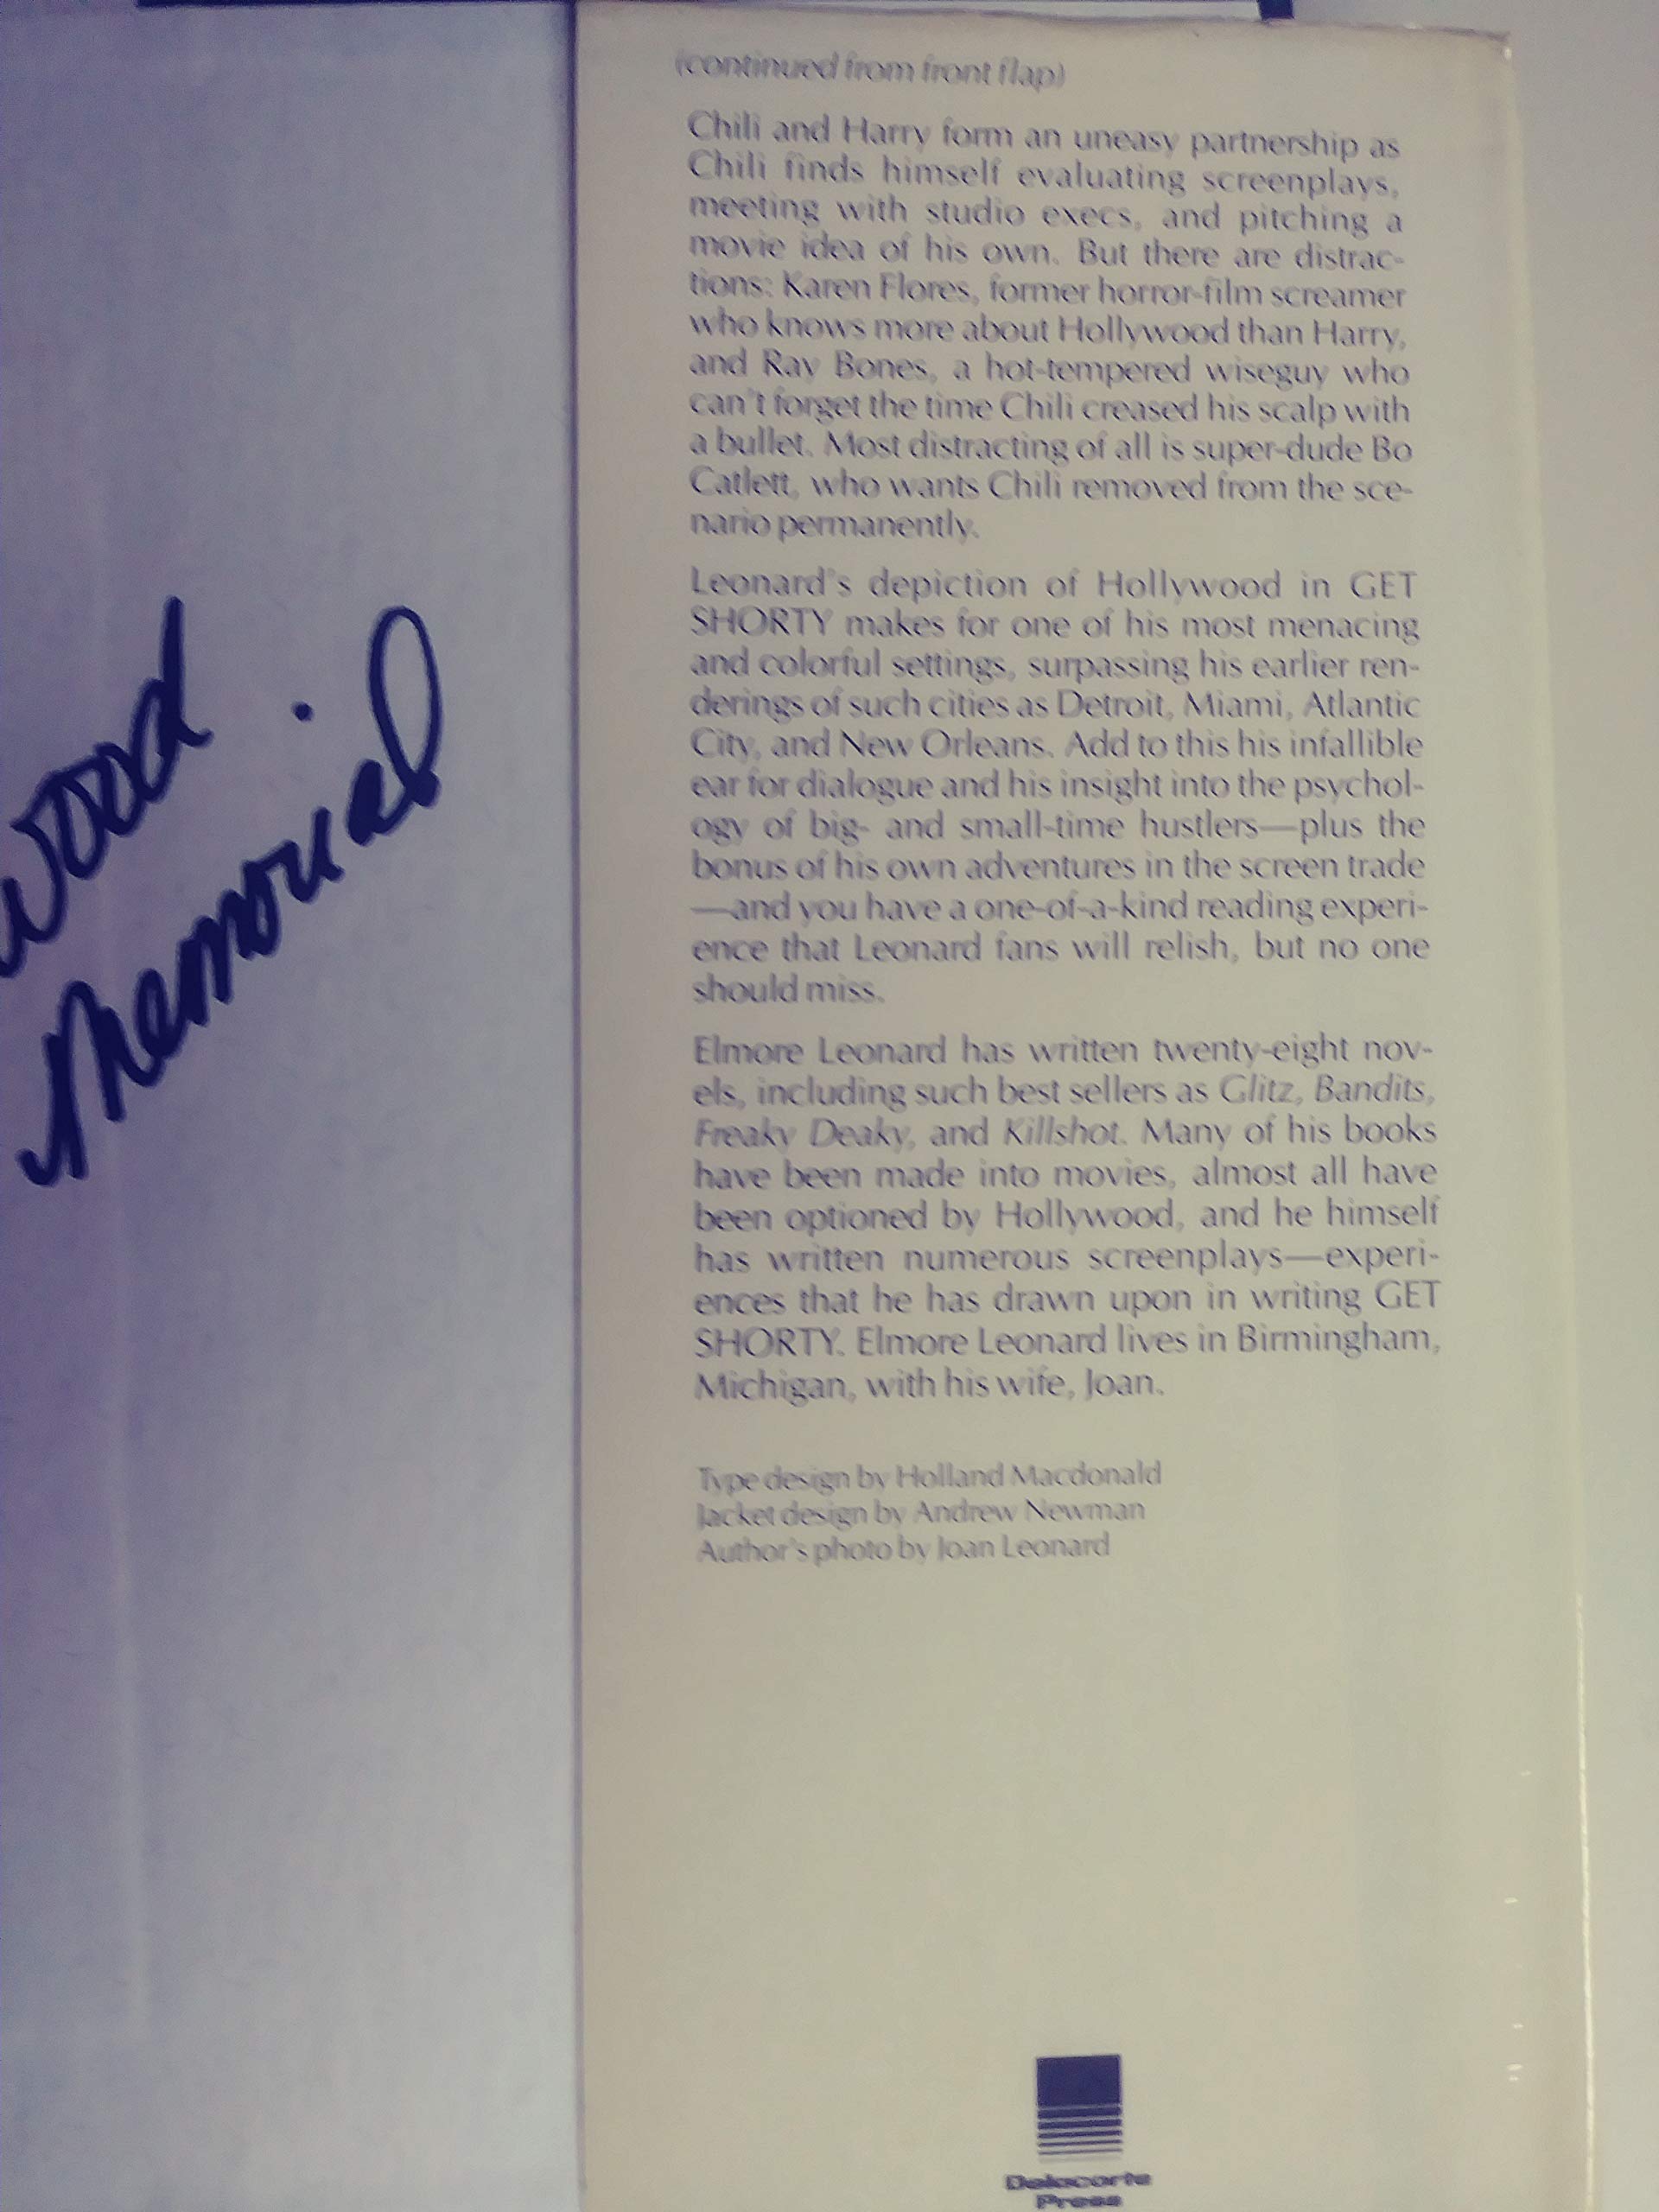 wood
Memorial
(continued from front flap)
Chili and Harry form an uneasy partnership as
Chili finds himself evaluating screenplays,
meeting with studio execs, and pitching a
movie idea of his own. But there are distrac-
tions: Karen Flores, former horror-film screamer
who knows more about Hollywood than Harry,
and Ray Bones, a hot-tempered wiseguy who
can't forget the time Chili creased his scalp with
a bullet. Most distracting of all is super-dude Bo
Catlett, who wants Chili removed from the sce-
nario permanently.
Leonard's depiction of Hollywood in GET
SHORTY makes for one of his most menacing
and colorful settings, surpassing his earlier ren-
derings of such cities as Detroit, Miami, Atlantic
City, and New Orleans. Add to this his infallible
ear for dialogue and his insight into the psychol-
ogy of big- and small-time hustlers—plus the
bonus of his own adventures in the screen trade
—and you have a one-of-a-kind reading experi-
ence that Leonard fans will relish, but no one
should miss.
Elmore Leonard has written twenty-eight nov-
els, including such best sellers as Glitz, Bandits,
Freaky Deaky, and Killshot. Many of his books
have been made into movies, almost all have
been optioned by Hollywood, and he himself
has written numerous screenplays—experi-
ences that he has drawn upon in writing GET
SHORTY. Elmore Leonard lives in Birmingham,
Michigan, with his wife, Joan.
Type design by Holland Macdonald
Jacket design by Andrew Newman
Author's photo by Joan Leonard
Delacorte
Press